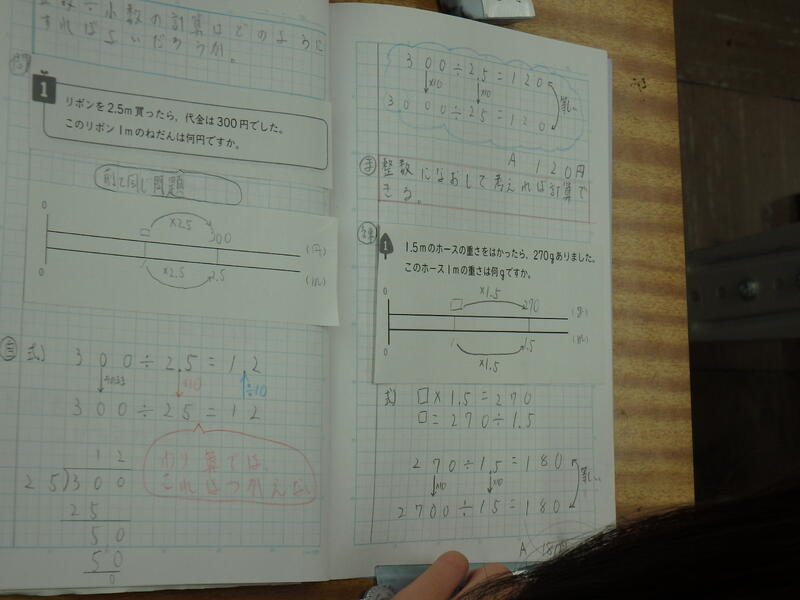 整数÷小数の計算はどのように
すればよいだろうか。
問
1
リボンを2.5m買ったら，代金は300円でした。
このリボン1mのねだんは何円ですか。
前と同じ問題
0
×2.5
□
300
(円)
(m)
0
1
2.5
×2.5
式)
300÷2.5=12
そのまま
×10
÷10
300÷25=12
わり算では、
これはつかえない
12
25)300
25
50
50
0
300÷2.5=120
×10
×10
等しい
3000÷25=120
A 120円
ま
整数になおして考えれば計算で
きる。
練
1
1.5mのホースの重さをはかったら，270gありました。
このホース1mの重さは何gですか。
0
×1.5
□
270
(g)
(m)
0
1
1.5
×1.5
式)
□×1.5=270
□=270÷1.5
270÷1.5=180
×10
×10
等しい
2700÷15=180
A 180